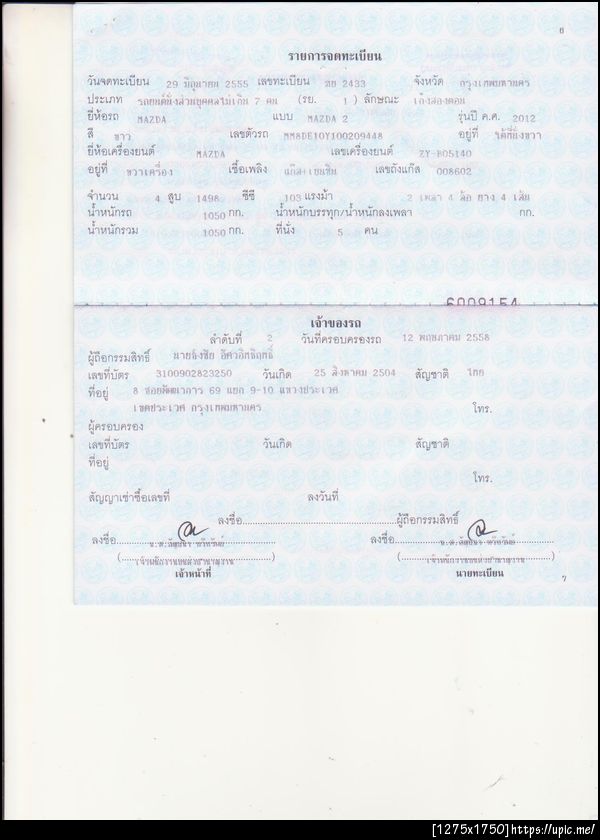 รายการจดทะเบียน
วันจดทะเบียน 29 มิถุนายน 2555 เลขทะเบียน 2433 จังหวัด กรุงเทพมหานคร
ประเภท รถยนต์นั่งส่วนบุคคลไม่เกิน 7 คน (รย. 1 ) ลักษณะ เก๋งสองตอน
ยี่ห้อรถ MAZDA แบบ MAZDA 2 รุ่นปี ค.ศ. 2012
สี ขาว เลขตัวรถ MM8DE10Y100209448 อยู่ที่ ใต้ที่นั่งขวา
ยี่ห้อเครื่องยนต์ MAZDA เลขเครื่องยนต์ ZY-805140
อยู่ที่ ขวาเครื่อง เชื้อเพลิง เลขถังแก๊ส 008602
จำนวน 4 สูบ 1498 ซีซี 103 แรงม้า 2 เพลา 4 ล้อ ยาง 4 เส้น
น้ำหนักรถ 1050 กก. น้ำหนักบรรทุก/น้ำหนักลงเพลา กก.
น้ำหนักรวม 1050 กก. ที่นั่ง 5 คน
6009154
เจ้าของรถ
ลำดับที่ 2 วันที่ครอบครองรถ 12 พฤษภาคม 2558
ผู้ถือกรรมสิทธิ์
เลขที่บัตร 3100902823250 วันเกิด 25 สิงหาคม 2504 สัญชาติ ไทย
ที่อยู่ 8 ซอยพัฒนาการ 69 แยก 9-10 แขวงประเวศ
เขตประเวศ กรุงเทพมหานคร โทร.
ผู้ครอบครอง
เลขที่บัตร วันเกิด สัญชาติ
ที่อยู่
โทร.
สัญญาเช่าซื้อเลขที่ ลงวันที่
ลงชื่อ ผู้ถือกรรมสิทธิ์
ลงชื่อ ลงชื่อ
เจ้าหน้าที่ นายทะเบียน
7
[1275x1750]https://upic.me/